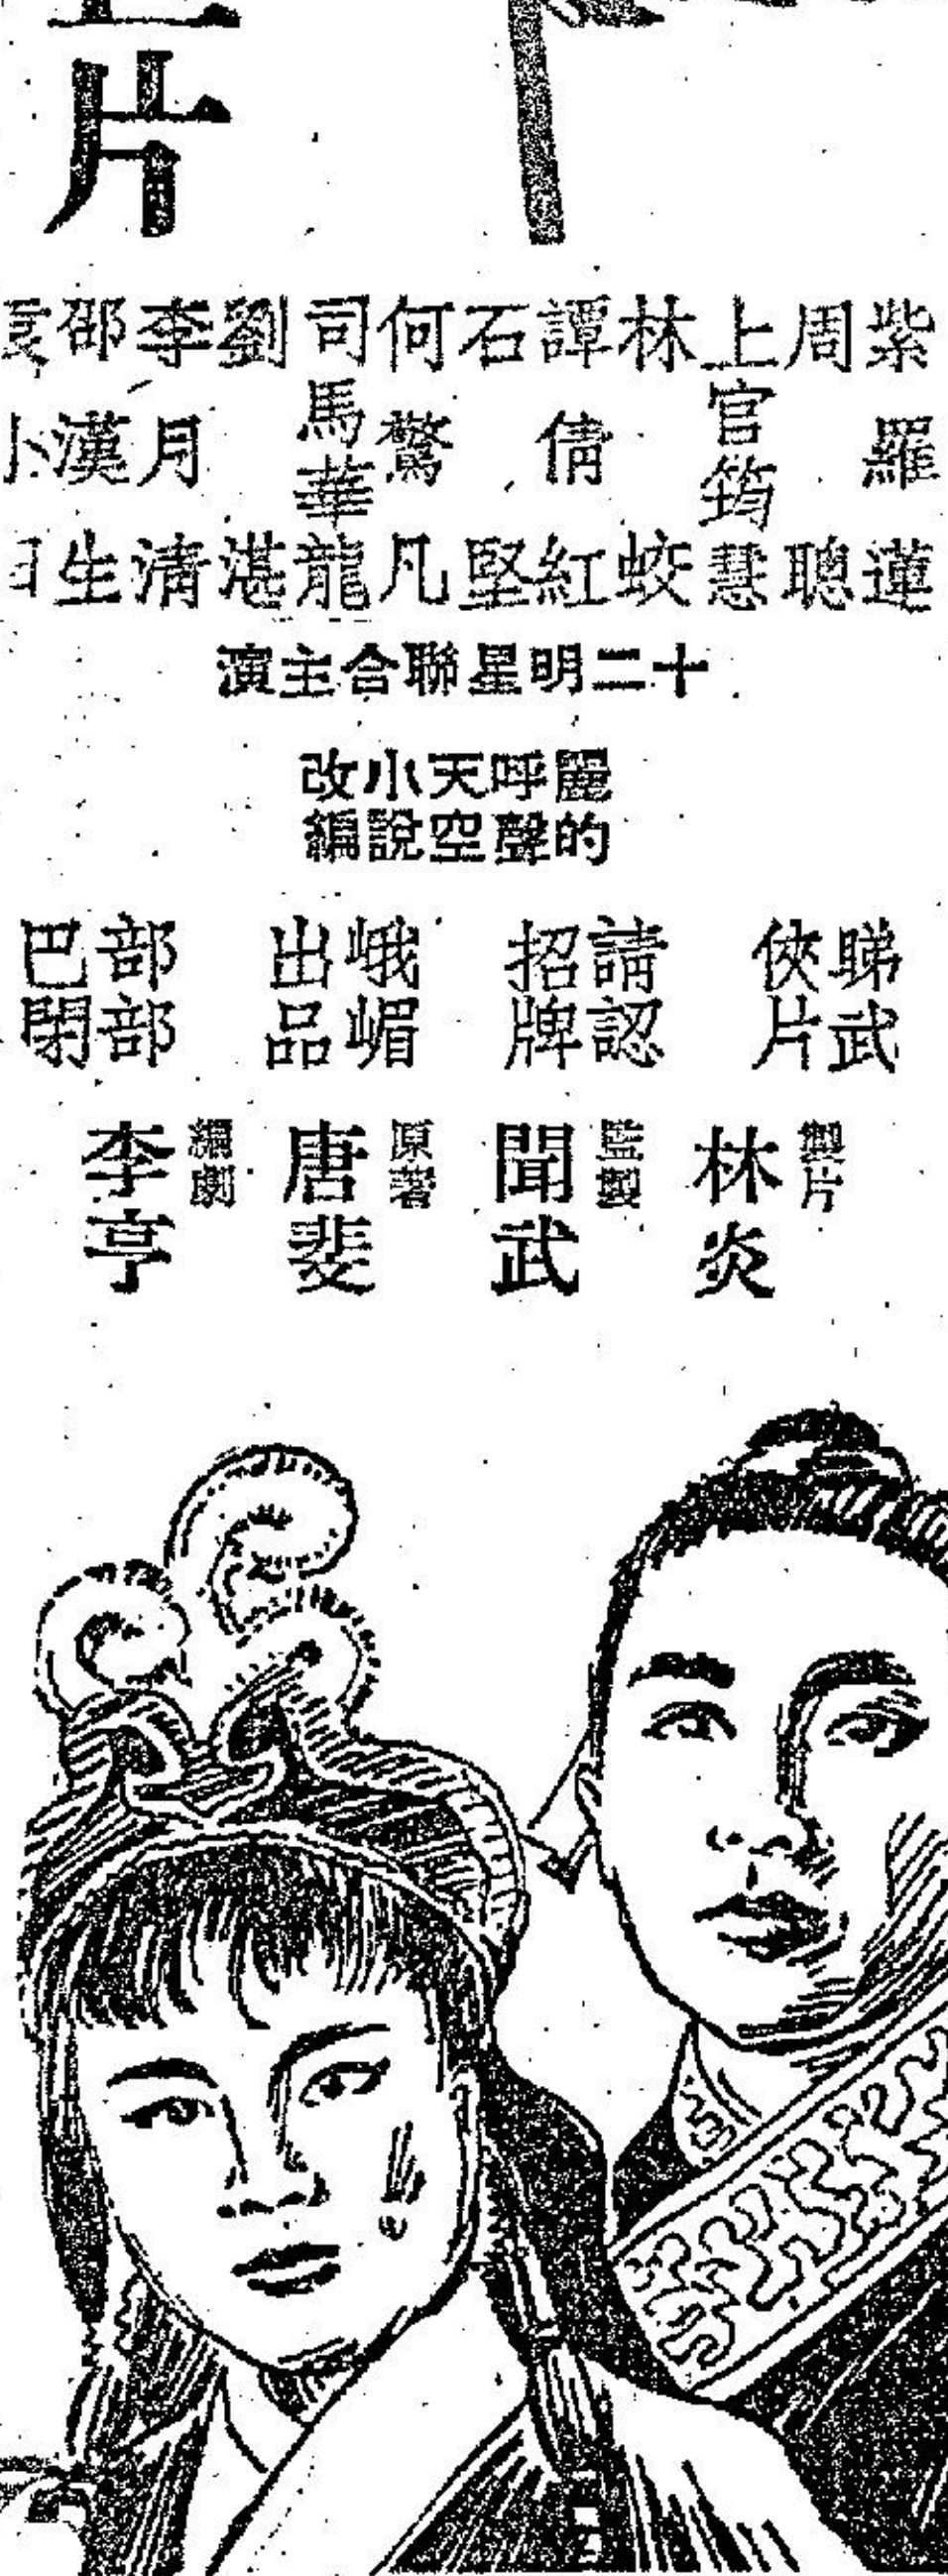 片
紫羅蓮
周聰
上官筠慧
林蛟
譚倩紅
石堅
何驚凡
司馬華龍
劉湛
李月清
邵漢生
袁小田
十二明星聯合主演
麗的呼聲天空小說改編
睇武俠片
請認招牌
峨嵋出品
部部巴閉
製片
林炎
監製
聞武
原著
唐斐
編劇
李亨